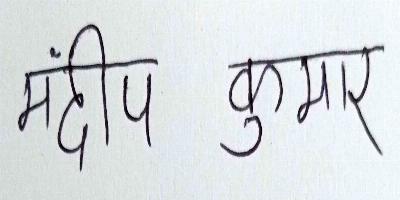 मंदीप कुमार